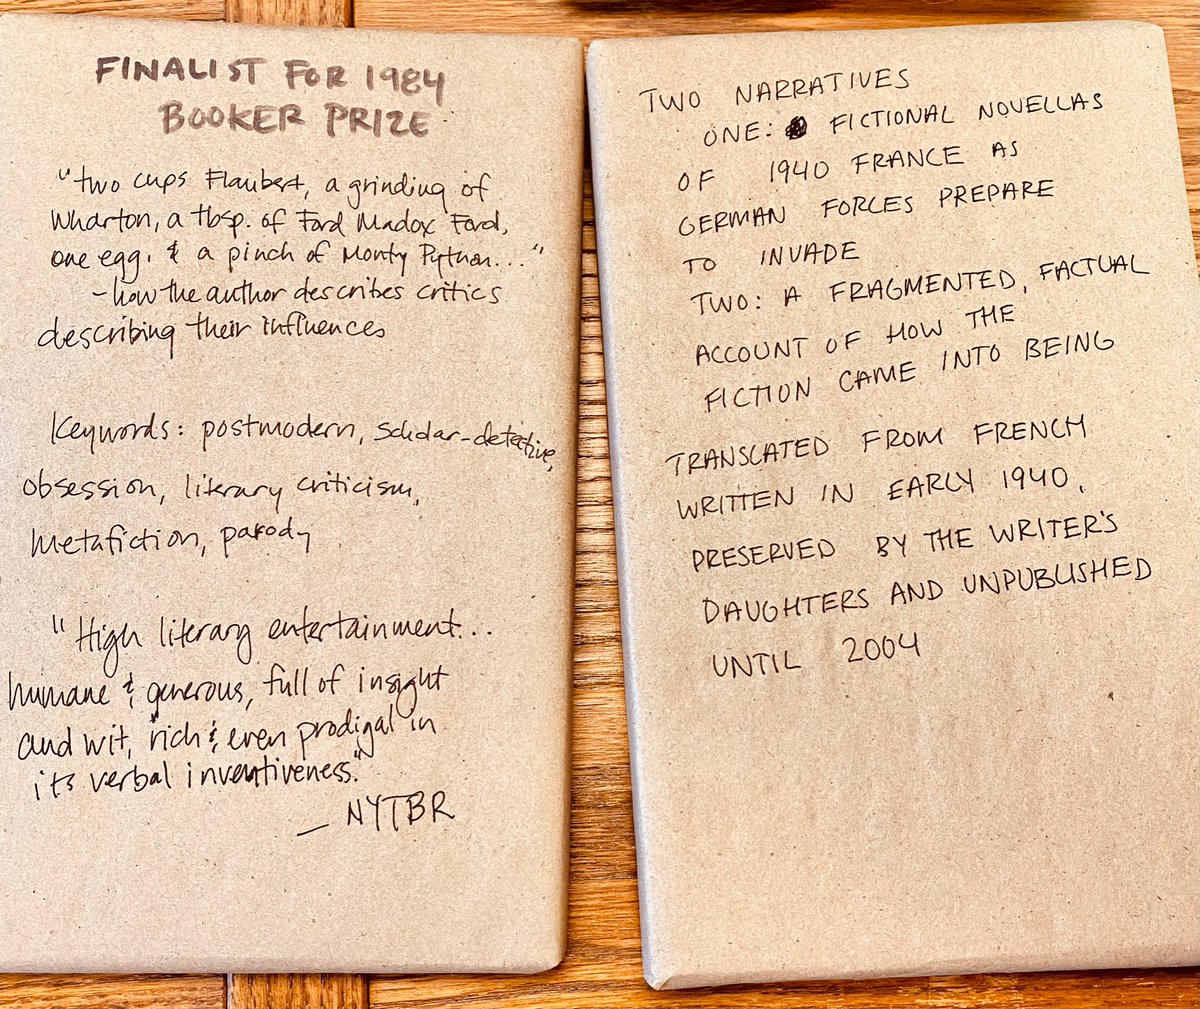 FINALIST FOR 1984
BOOKER PRIZE
"two cups Flaubert, a grinding of
Wharton, a tbsp. of Ford Madox Ford,
one egg. & a pinch of Monty Python..."
- how the author describes critics
describing their influences
Keywords: postmodern, scholar-detective,
obsession, literary criticism,
metafiction, parody
"High literary entertainment...
humane & generous, full of insight
and wit, rich & even prodigal in
its verbal inventiveness."
— NYTBR
TWO NARRATIVES
ONE: FICTIONAL NOVELLAS
OF 1940 FRANCE AS
GERMAN FORCES PREPARE
TO INVADE
TWO: A FRAGMENTED, FACTUAL
ACCOUNT OF HOW THE
FICTION CAME INTO BEING
TRANSLATED FROM FRENCH
WRITTEN IN EARLY 1940,
PRESERVED BY THE WRITER'S
DAUGHTERS AND UNPUBLISHED
UNTIL 2004